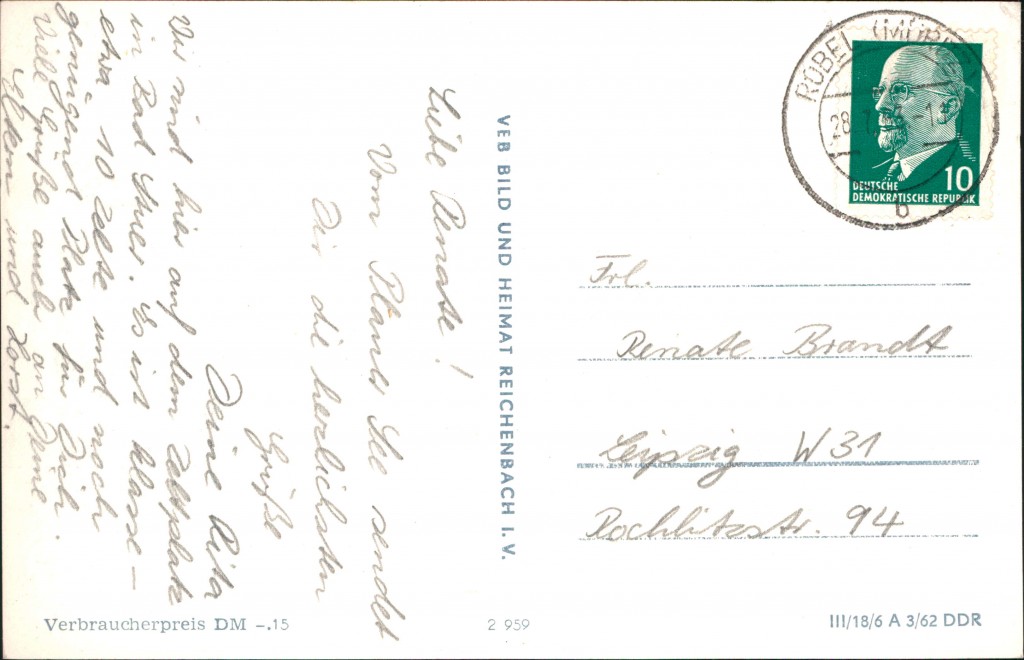 Liebe Renate!
Vom Plauer See sendet
Dir die herzlichsten
Grüße
Deine Rita
Wir sind hier auf dem Zeltplatz
in Bad Stuer. Es ist klasse –
etwa 10 Zelte und noch
genügend Platz für Dich.
Viele Grüße auch an Deine
Eltern und Horst.
VEB BILD UND HEIMAT REICHENBACH I. V.
RÖBEL (MÜRITZ)
28. 7.
b
10
DEUTSCHE
DEMOKRATISCHE REPUBLIK
Frl.
Renate Brandt
Leipzig W 31
Rochlitzstr. 94
Verbraucherpreis DM –.15
2 959
III/18/6 A 3/62 DDR